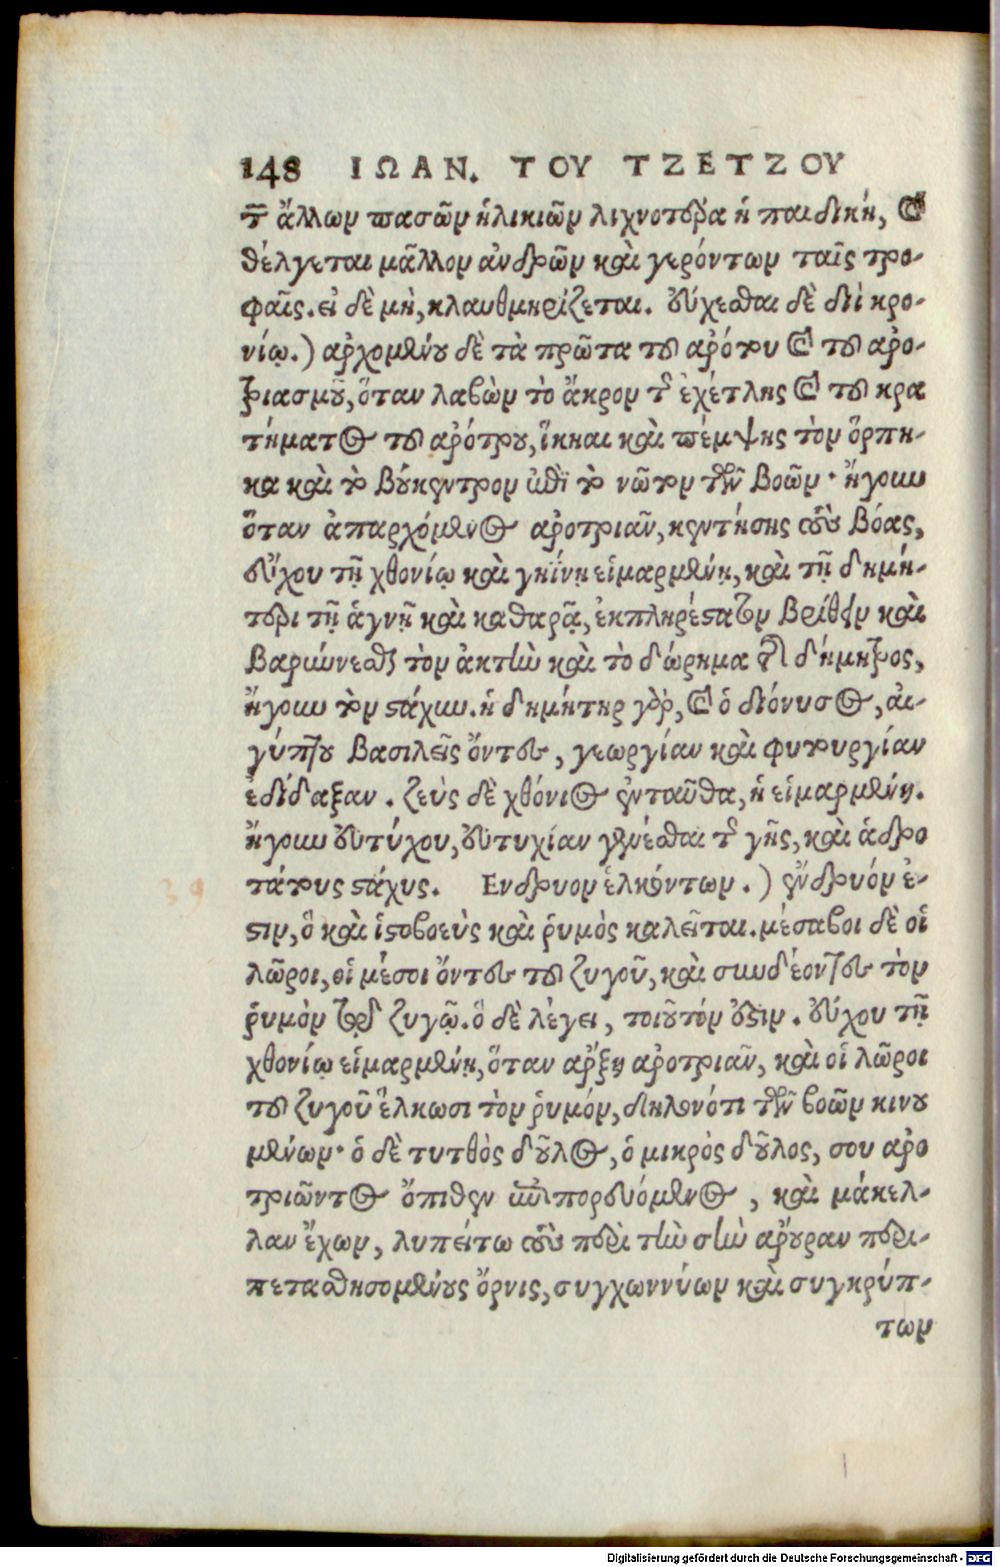 148 ΙΩΑΝ. ΤΟΥ ΤΖΕΤΖΟΥ
τῶν ἄλλων πασῶν ἡλικιῶν λιχνοτέρα ἡ παιδικὴ, καὶ
θέλγεται μᾶλλον ἀνδρῶν καὶ γερόντων ταῖς τρο-
φαῖς. εἰ δὲ μὴ, κλαυθμηρίζεται. εὔχεσθαι δὲ διὶ κρο-
νίῳ.) ἀρχομένου δὲ τὰ πρῶτα τοῦ ἀρότου καὶ τοῦ ἀρο-
τριασμοῦ, ὅταν λαβὼν τὸ ἄκρον τῆς ἐχέτλης καὶ τοῦ κρα
τήματος τοῦ ἀρότρου, ἵκηαι καὶ πέμψης τὸν ὅρπη-
κα καὶ τὸ βούκεντρον ἐπὶ τὸ νῶτον τῶν βοῶν· ἤγουν
ὅταν ἀπαρχόμενος ἀροτριᾶν, κεντήσης τοὺς βόας,
εὔχου τῇ χθονίῳ καὶ γηΐνῃ εἱμαρμένῃ, καὶ τῇ δημή-
τερι τῇ ἁγνῇ καὶ καθαρᾷ, ἐκπληρέστατον βρίθειν καὶ
βαρύνεσθαι τὸν ἀκτὴν καὶ τὸ δώρημα τῆς δήμητρος,
ἤγουν τὸν στάχυν. ἡ δημήτηρ γὰρ, καὶ ὁ διόνυσος, αἰ-
γύπτου βασιλεῖς ὄντες, γεωργίαν καὶ φυτουργίαν
ἐδίδαξαν. ζεὺς δὲ χθόνιος ἐνταῦθα, ἡ εἱμαρμένη.
ἤγουν εὐτύχου, εὐτυχίαν γενέσθαι τῆς γῆς, καὶ ἁδρο
τάτους στάχυς. Ενδρυον ἑλκόντων.) ἔνδρυόν ἐ-
στιν, ὃ καὶ ἱστοβοεὺς καὶ ῥυμὸς καλεῖται. μέσαβοι δὲ οἱ
λῶροι, οἱ μέσοι ὄντες τοῦ ζυγοῦ, καὶ συνδέοντες τὸν
ῥυμὸν τῷ ζυγῷ. ὃ δὲ λέγει, τοιοῦτόν ἐστιν. εὔχου τῇ
χθονίῳ εἱμαρμένῃ, ὅταν ἄρξῃ ἀροτριᾶν, καὶ οἱ λῶροι
τοῦ ζυγοῦ ἕλκωσι τὸν ῥυμόν, δηλονότι τῶν βοῶν κινου
μένων· ὁ δὲ τυτθὸς δοῦλος, ὁ μικρὸς δοῦλος, σου ἀρο
τριῶντος ὄπιθεν συμπορευόμενος, καὶ μάκελ-
λαν ἔχων, λυπείτω τοὺς περὶ τὴν σὴν ἄρουραν περι-
πετασθησομένους ὄρνις, συγχωννύων καὶ συγκρύπ-
των
Digitalisierung gefördert durch die Deutsche Forschungsgemeinschaft - DFG